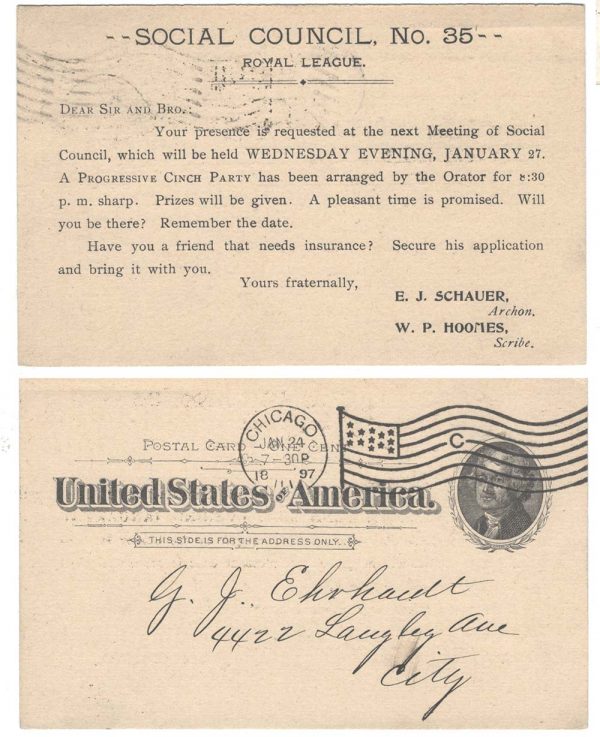 --SOCIAL COUNCIL, No. 35--
ROYAL LEAGUE.
DEAR SIR AND BRO.:
Your presence is requested at the next Meeting of Social
Council, which will be held WEDNESDAY EVENING, JANUARY 27.
A PROGRESSIVE CINCH PARTY has been arranged by the Orator for 8:30
p. m. sharp. Prizes will be given. A pleasant time is promised. Will
you be there? Remember the date.
Have you a friend that needs insurance? Secure his application
and bring it with you.
Yours fraternally,
E. J. SCHAUER,
Archon.
W. P. HOOMES,
Scribe.
CHICAGO
JAN 24
7-30P
18 97
ILL.
C
POSTAL CARD - ONE CENT
United States of America.
THIS SIDE IS FOR THE ADDRESS ONLY.
G. J. Ehrhardt
4422 Langley Ave
City